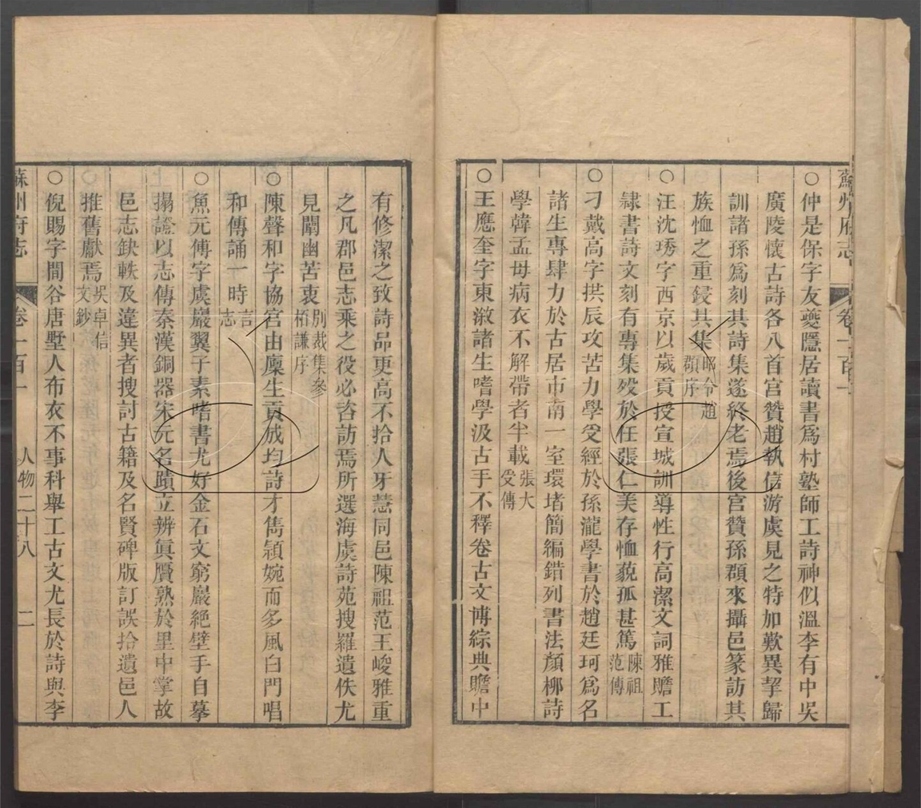 蘇州府志
卷一百一
○仲是保字友夔隱居讀書爲村塾師工詩神似溫李有中吳
廣陵懷古詩各八首宮贊趙執信游虞見之特加歎異挈歸
訓諸孫爲刻其詩集遂終老焉後宮贊孫頵來攝邑篆訪其
族恤之重鋟其集昭令趙
頵序
○汪沈琇字西京以歲貢授宣城訓導性行高潔文詞雅贍工
隸書詩文刻有專集歿於任張仁美存恤藐孤甚篤陳祖
范傳
○刁戴高字拱辰攻苦力學受經於孫瀧學書於趙廷珂爲名
諸生專肆力於古居市南一室環堵簡編錯列書法顏柳詩
學韓孟母病衣不解帶者半載張大
受傳
○王應奎字東漵諸生嗜學汲古手不釋卷古文博綜典贍中
有修潔之致詩品更高不拾人牙慧同邑陳祖范王峻雅重
之凡郡邑志乘之役必咨訪焉所選海虞詩苑搜羅遺佚尤
見闡幽苦衷別裁集參
柏謙序
○陳聲和字協宮由廩生貢成均詩才雋穎婉而多風白門唱
和傳誦一時言
志
○魚元傅字虞巖翼子素嗜書尤好金石文窮巖絕壁手自摹
搨證以志傳泰漢銅器宋元名蹟立辨眞贗熟於里中掌故
邑志缺軼及違異者搜討古籍及名賢碑版訂誤拾遺邑人
推舊獻焉吳卓信
文鈔
○倪賜字閒谷唐墅人布衣不事科舉工古文尤長於詩與李
蘇州府志
卷一百一
人物二十八
二